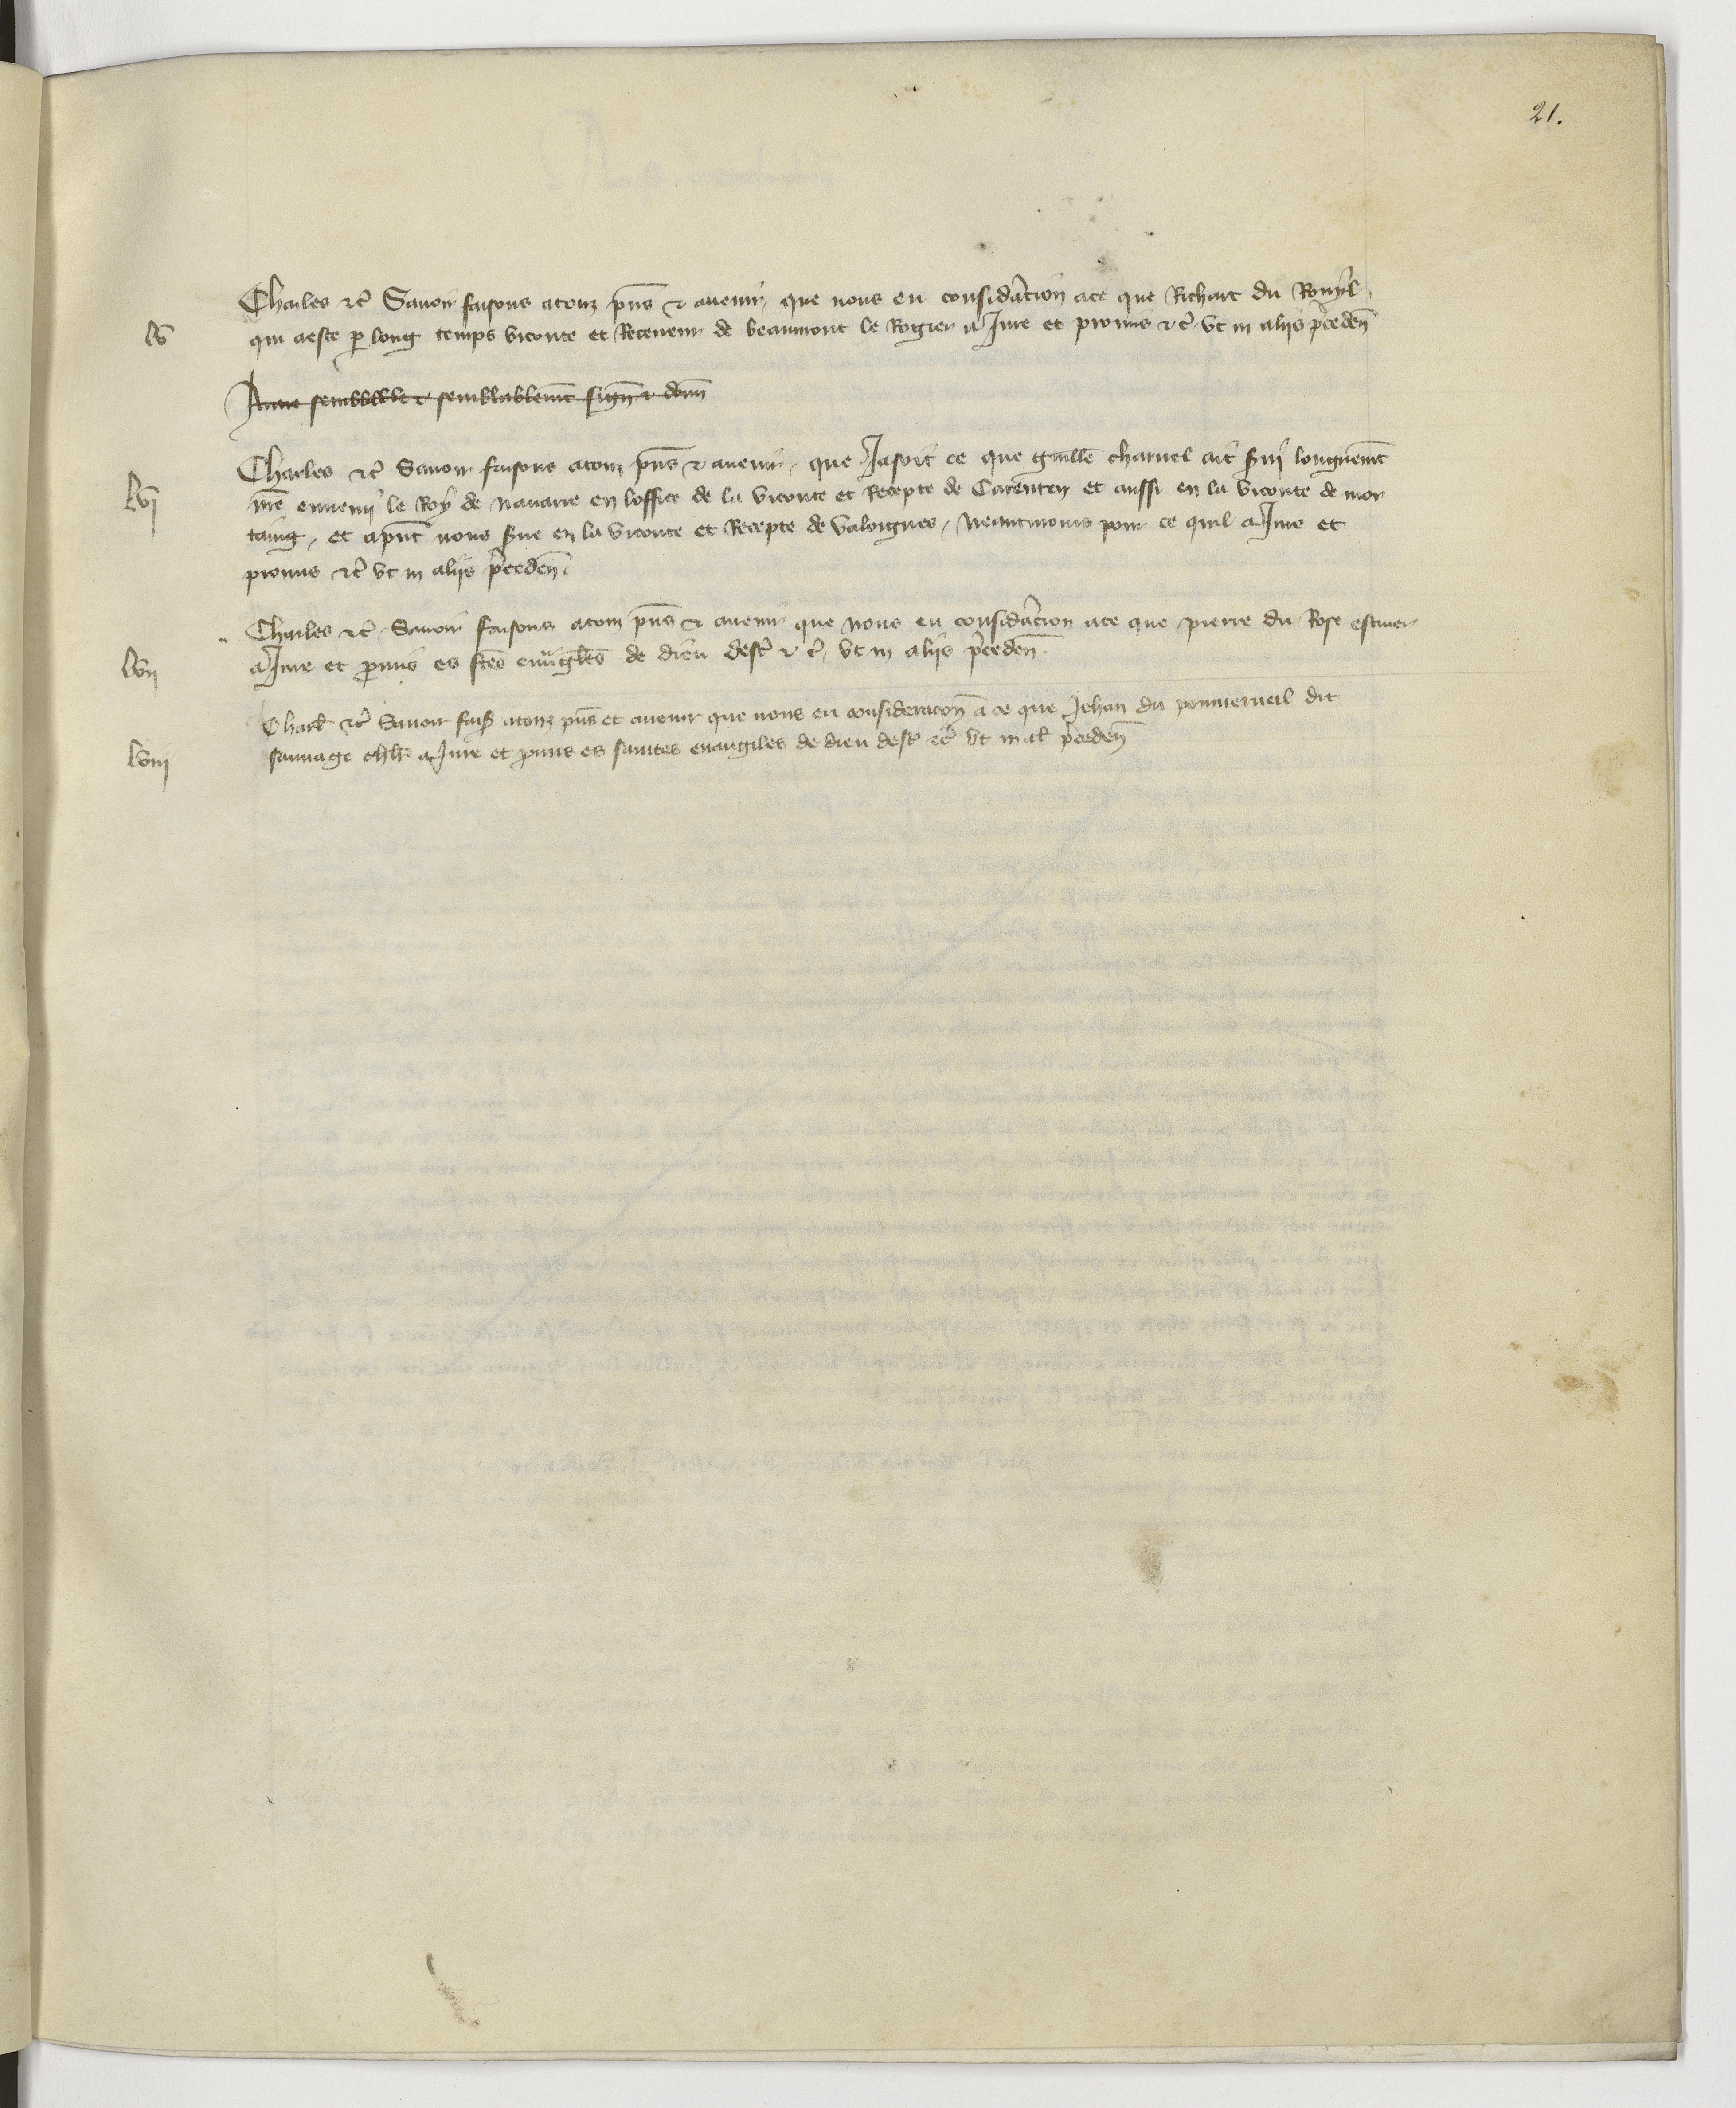 21.
Charles etc̃ Sauoir faisons atouz p̃ns et auenir que nous en considãcion ace que Richart du Rouyl
lv qui aeste ꝑ long temps viconte et Receueur de beaumont le Rogier a Jure et promis etc̃ vt in aliis p̃ceden̄
Autre semblable et semblablem̃t sign̄ et don̄
Charles etc̃ Sauoir faisons atouz p̃ns et auenir que Jasoit ce que guille charuel ait s̃ui longuem̃t
lvj nr̃e ennemi le Roy de Nauarre en loffice de la viconte et Recepte de Carenten et aussi en la viconte de mor
taing, et ap̃nt nous s̃ue en la viconte et Recepte de valoignes, Neantmoins pour ce quil a Jure et
promis etc̃ vt in aliis p̃ceden̄.
Charles etc̃ Sauoir faisons atouz p̃ns et auenir que nous en considãcion ace que pierre du Rose escuier
lvij a Jure et ꝓmis es stẽs euuãgiles de dieu dest̃ etc̃ vt in aliis p̃ceden̄.
Charl̃ etc̃ Sauoir fais̃ atouz p̃ns et auenir que nous en consideracõn a ce que Jehan du dit
lviij sauuage chlr̃ a Jure et ꝓmis es saintes euangiles de dieu dest̃ etc̃ vt in al̃ p̃ceden̄